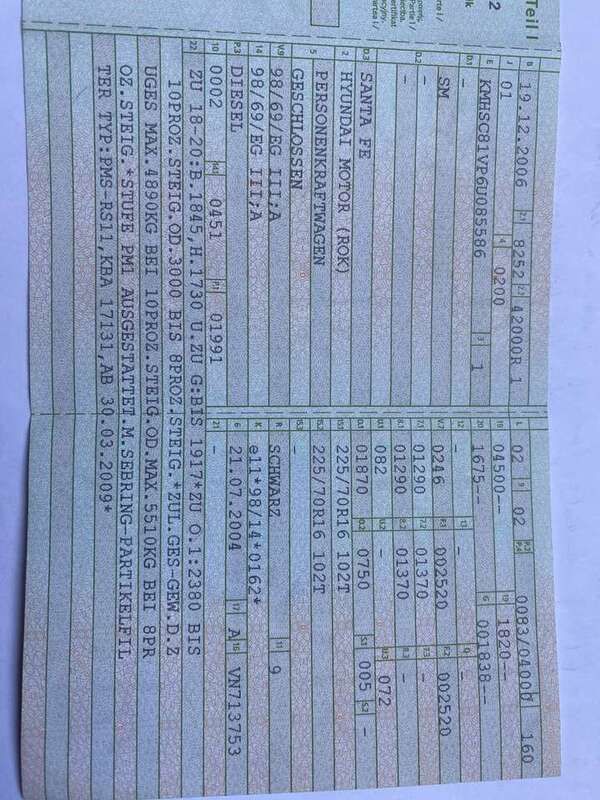 Teil I
2
B 19.12.2006 2.1 8252 2.2 42000R 1
J 01 4 0200
E KMHSC81VP6U085586 3 1
D.1 -
SM
D.2 -
-
D.3 SANTA FE
2 HYUNDAI MOTOR (ROK)
5 PERSONENKRAFTWAGEN
GESCHLOSSEN
V.9 98/69/EG III;A
14 98/69/EG III;A
P.3 DIESEL
10 0002 14.1 0451 P.1 01991
L 02 9 02 P.2 P.4 0083/04000 160
18 04500-- 19 1820--
20 1675-- G 001838--
12 - 13 - Q -
V.7 0246 F.1 002520 F.2 002520
7.1 01290 7.2 01370 7.3 -
8.1 01290 8.2 01370 8.3 -
U.1 082 U.2 - U.3 072
O.1 01870 O.2 0750 S.1 005 S.2 -
15.1 225/70R16 102T
15.2 225/70R16 102T
15.3 -
R SCHWARZ 11 9
K e11*98/14*0162*
6 21.07.2004 17 A 16 VN713753
21 -
22 ZU 18-20:B.1845,H.1730 U.ZU G:BIS 1917*ZU O.1:2380 BIS
10PROZ.STEIG.OD.3000 BIS 8PROZ.STEIG.*ZUL.GES-GEW.D.Z
UGES MAX.4890KG BEI 10PROZ.STEIG.OD.MAX.5510KG BEI 8PR
OZ.STEIG.*STUFE PM1 AUSGESTATTET.M.SEBRING-PARTIKELFIL
TER TYP:PMS-RS11,KBA 17131,AB 30.03.2009*